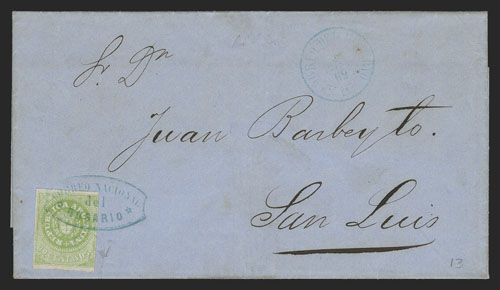 Sr. Dn
Juan Barbeyto.
San Luis
CORREO NACIONAL
del
ROSARIO
13